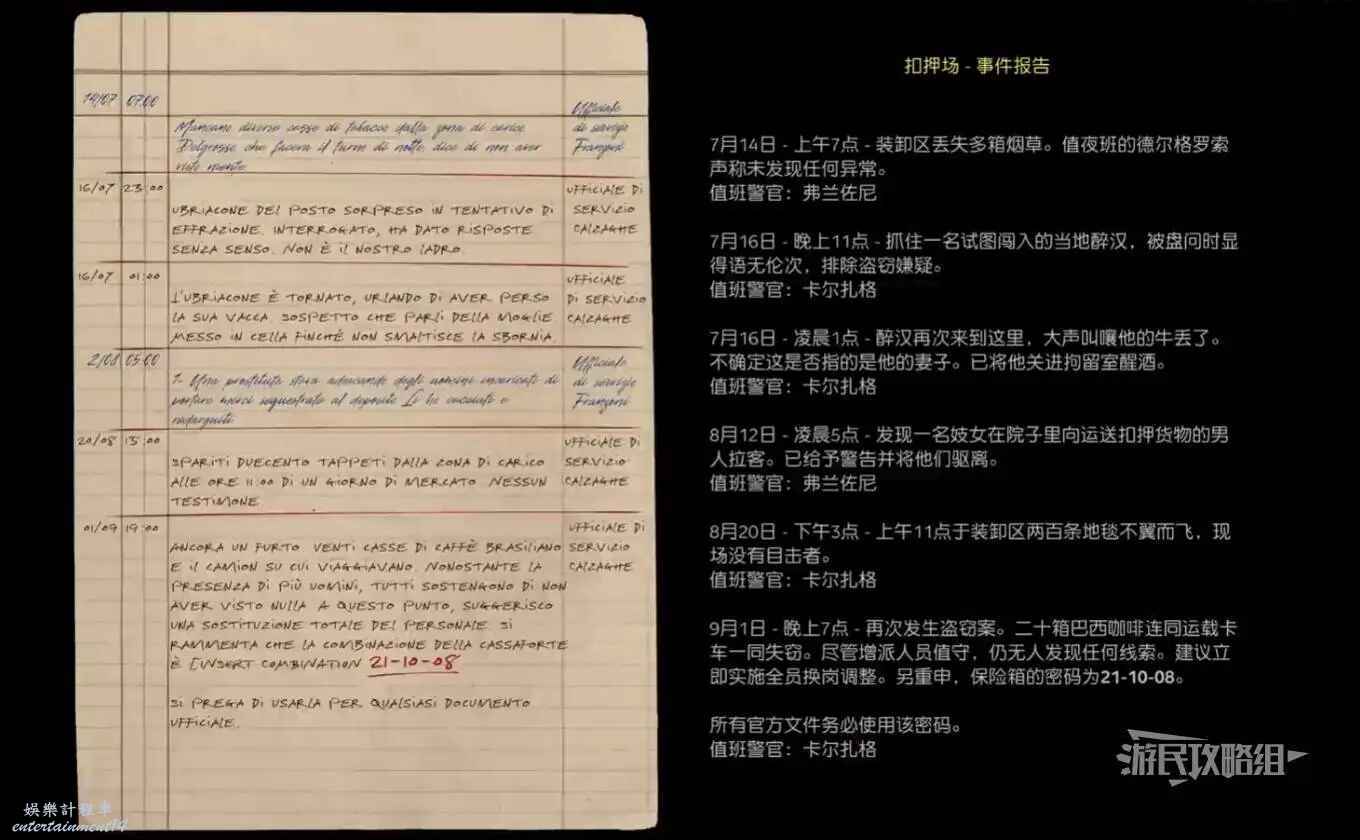 14/07 07:00 Ufficiale
di servizio
Mancano diverse casse di tabacco dalla zona di carico Franzoni
Delgrosso che faceva il turno di notte, dice di non aver
visto niente.
16/07 23:00 UFFICIALE DI
UBRIACONE DEL POSTO SORPRESO IN TENTATIVO DI SERVIZIO
EFFRAZIONE. INTERROGATO, HA DATO RISPOSTE CALZAGHE
SENZA SENSO. NON È IL NOSTRO LADRO.
16/07 01:00 UFFICIALE
L'UBRIACONE È TORNATO, URLANDO DI AVER PERSO DI SERVIZIO
LA SUA VACCA. SOSPETTO CHE PARLI DELLA MOGLIE CALZAGHE
MESSO IN CELLA FINCHÉ NON SMALTISCE LA SBORNIA.
2/08 05:00 Ufficiale
Una prostituta stava adescando degli uomini incaricati di di servizio
portare merci sequestrate al deposito Li ho cacciati e Franzoni
redarguiti
20/08 15:00 UFFICIALE DI
SPARITI DUECENTO TAPPETI DALLA ZONA DI CARICO SERVIZIO
ALLE ORE 11:00 DI UN GIORNO DI MERCATO. NESSUN CALZAGHE
TESTIMONE.
01/09 19:00 UFFICIALE DI
ANCORA UN FURTO. VENTI CASSE DI CAFFÈ BRASILIANO SERVIZIO
E IL CAMION SU CUI VIAGGIAVANO. NONOSTANTE LA CALZAGHE
PRESENZA DI PIÙ UOMINI, TUTTI SOSTENGONO DI NON
AVER VISTO NULLA. A QUESTO PUNTO, SUGGERISCO
UNA SOSTITUZIONE TOTALE DEL PERSONALE. SI
RAMMENTA CHE LA COMBINAZIONE DELLA CASSAFORTE
È [INSERT COMBINATION 21-10-08
SI PREGA DI USARLA PER QUALSIASI DOCUMENTO
UFFICIALE.
扣押场 - 事件报告
7月14日 - 上午7点 - 装卸区丢失多箱烟草。值夜班的德尔格罗索
声称未发现任何异常。
值班警官：弗兰佐尼
7月16日 - 晚上11点 - 抓住一名试图闯入的当地醉汉，被盘问时显
得语无伦次，排除盗窃嫌疑。
值班警官：卡尔扎格
7月16日 - 凌晨1点 - 醉汉再次来到这里，大声叫嚷他的牛丢了。
不确定这是否指的是他的妻子。已将他关进拘留室醒酒。
值班警官：卡尔扎格
8月12日 - 凌晨5点 - 发现一名妓女在院子里向运送扣押货物的男
人拉客。已给予警告并将他们驱离。
值班警官：弗兰佐尼
8月20日 - 下午3点 - 上午11点于装卸区两百条地毯不翼而飞，现
场没有目击者。
值班警官：卡尔扎格
9月1日 - 晚上7点 - 再次发生盗窃案。二十箱巴西咖啡连同运载卡
车一同失窃。尽管增派人员值守，仍无人发现任何线索。建议立
即实施全员换岗调整。另重申，保险箱的密码为21-10-08。
所有官方文件务必使用该密码。
值班警官：卡尔扎格
游民攻略组
娛樂計程車
entertainment14